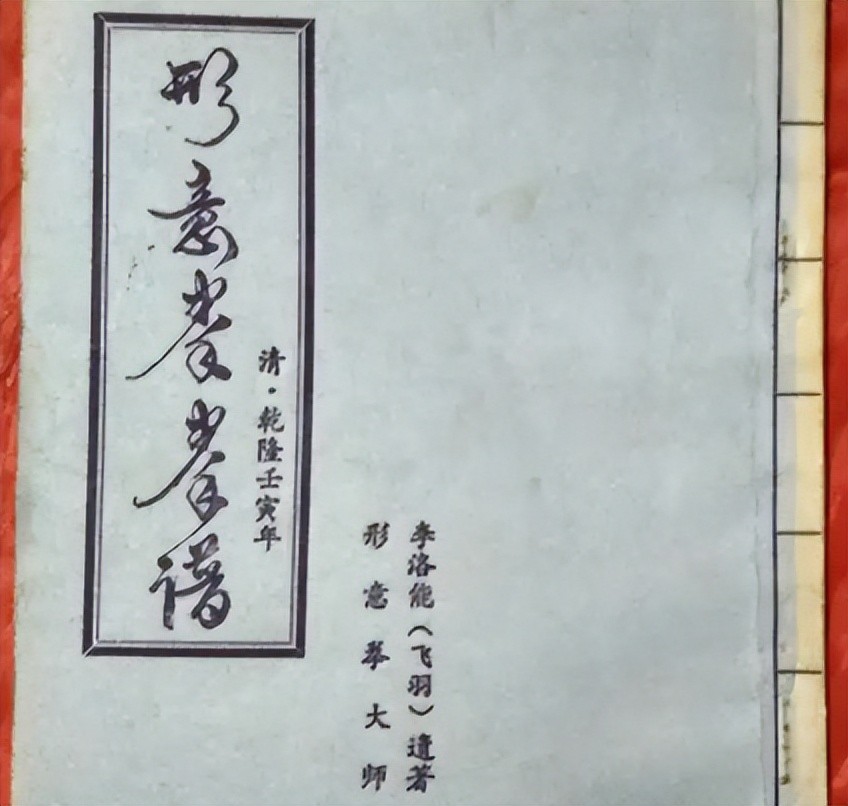 形意拳拳谱
清·乾隆壬寅年
李洛能（飞羽）遗著
形意拳大师